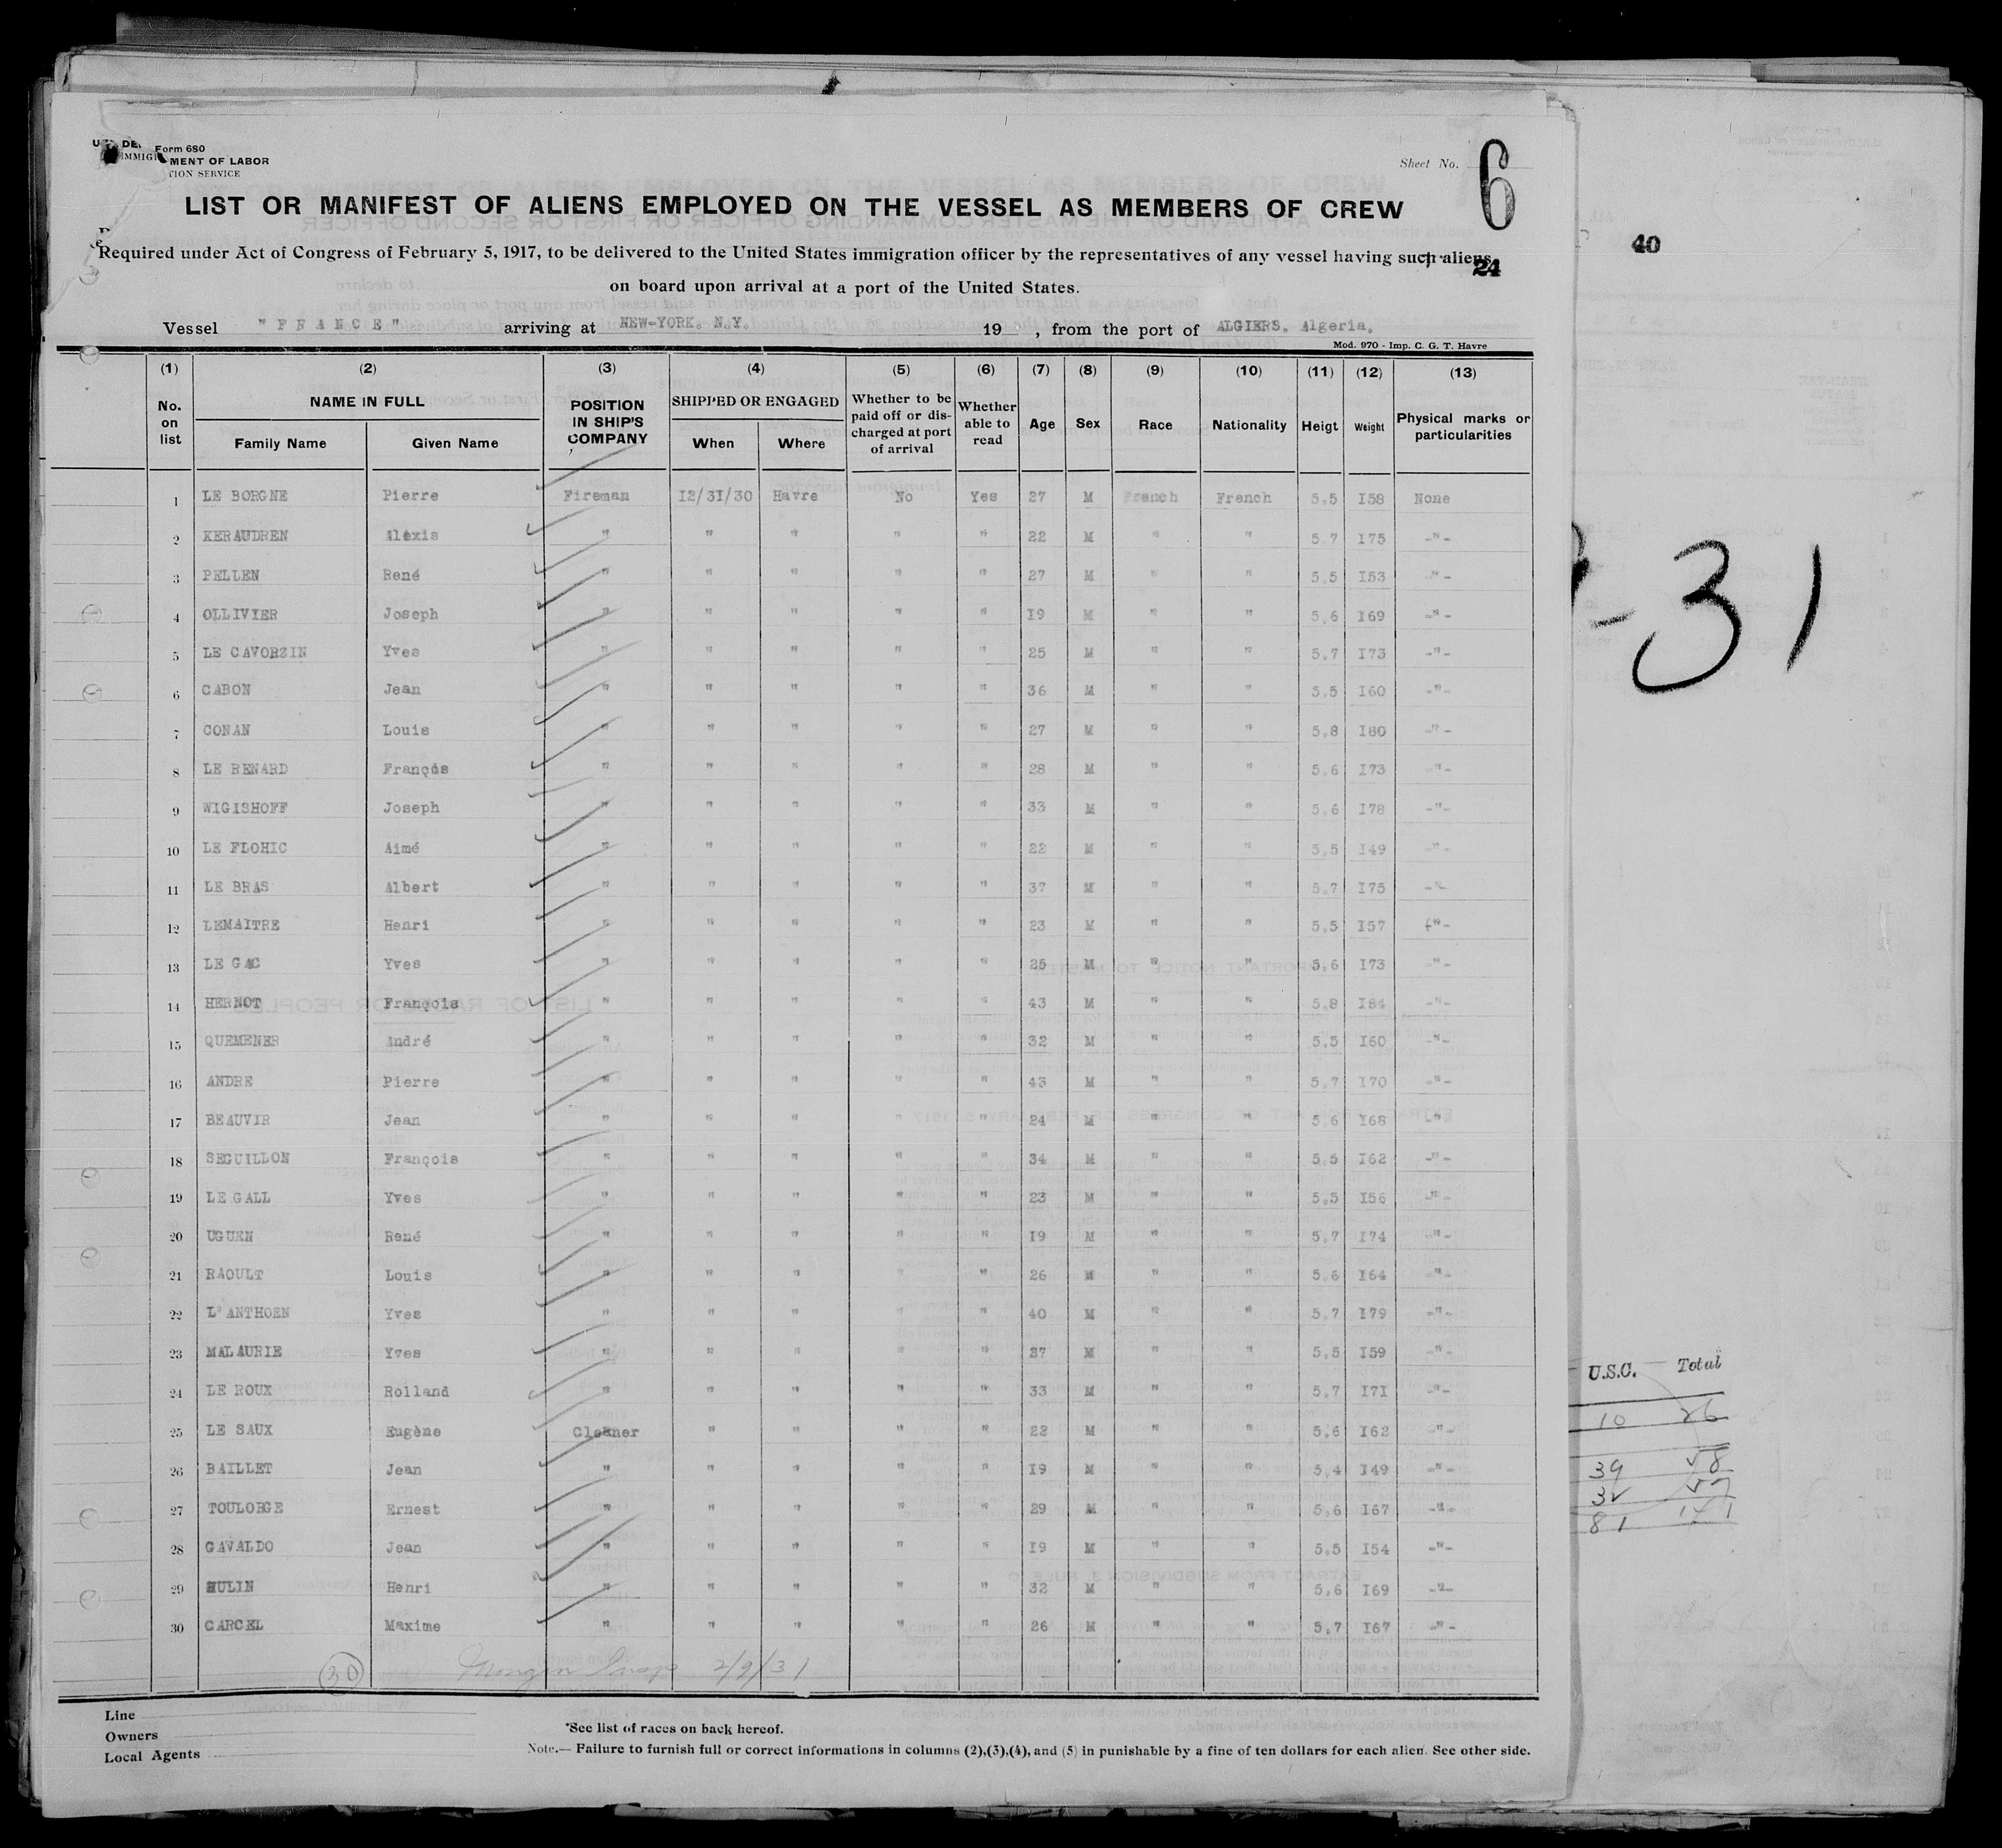 Form 680
U. DE. MENT OF LABOR
IMMIG TION SERVICE
Sheet No. 6
LIST OR MANIFEST OF ALIENS EMPLOYED ON THE VESSEL AS MEMBERS OF CREW
Required under Act of Congress of February 5, 1917, to be delivered to the United States immigration officer by the representatives of any vessel having such aliens
24
on board upon arrival at a port of the United States.
Vessel "FRANCE" arriving at NEW-YORK. N.Y. 19 , from the port of ALGIERS. Algeria.
Mod. 970 - Imp. C. G. T. Havre
(1) (2) (3) (4) (5) (6) (7) (8) (9) (10) (11) (12) (13)
No. on list NAME IN FULL Family Name Given Name POSITION IN SHIP'S COMPANY SHIPPED OR ENGAGED When Where Whether to be paid off or discharged at port of arrival Whether able to read Age Sex Race Nationality Heigt Weight Physical marks or particularities
1 LE BORGNE Pierre Fireman I2/3I/30 Havre No Yes 27 M French French 5.5 I58 None
2 KERAUDREN Alexis " " " " " 22 M " " 5.7 I75 -"-
3 PELLEN René " " " " " 27 M " " 5.5 I53 -"-
4 OLLIVIER Joseph " " " " " I9 M " " 5.6 I69 -"-
5 LE CAVORZIN Yves " " " " " 25 M " " 5.7 I73 -"-
6 CABON Jean " " " " " 36 M " " 5.5 I60 -"-
7 CONAN Louis " " " " " 27 M " " 5.8 I80 -"-
8 LE RENARD François " " " " " 28 M " " 5.6 I73 -"-
9 WIGISHOFF Joseph " " " " " 33 M " " 5.6 I78 -"-
10 LE FLOHIC Aimé " " " " " 22 M " " 5.5 I49 -"-
11 LE BRAS Albert " " " " " 37 M " " 5.7 I75 -"-
12 LEMAITRE Henri " " " " " 23 M " " 5.5 I57 -"-
13 LE GAC Yves " " " " " 25 M " " 5.6 I73 -"-
14 HERNOT François " " " " " 43 M " " 5.8 I84 -"-
15 QUEMENER André " " " " " 32 M " " 5.5 I60 -"-
16 ANDRE Pierre " " " " " 43 M " " 5.7 I70 -"-
17 BEAUVIR Jean " " " " " 24 M " " 5.6 I68 -"-
18 SEGUILLON François " " " " " 34 M " " 5.5 I62 -"-
19 LE GALL Yves " " " " " 23 M " " 5.5 I56 -"-
20 UGUEN René " " " " " I9 M " " 5.7 I74 -"-
21 RAOULT Louis " " " " " 26 M " " 5.6 I64 -"-
22 L'ANTHOEN Yves " " " " " 40 M " " 5.7 I79 -"-
23 MALAURIE Yves " " " " " 27 M " " 5.5 I59 -"-
24 LE ROUX Rolland " " " " " 33 M " " 5.7 I7I -"-
25 LE SAUX Eugène Cleaner " " " " 22 M " " 5.6 I62 -"-
26 BAILLET Jean " " " " " I9 M " " 5.4 I49 -"-
27 TOULORGE Ernest " " " " " 29 M " " 5.6 I67 -"-
28 GAVALDO Jean " " " " " I9 M " " 5.5 I54 -"-
29 HULIN Henri " " " " " 32 M " " 5.6 I69 -"-
30 CARCEL Maxime " " " " " 26 M " " 5.7 I67 -"-
30 2/9/31
Line
Owners
Local Agents
*See list of races on back hereof.
Note.— Failure to furnish full or correct informations in columns (2),(3),(4), and (5) in punishable by a fine of ten dollars for each alien. See other side.
40
-31
U.S.C. Total
10 26
39 58
32 57
81 141